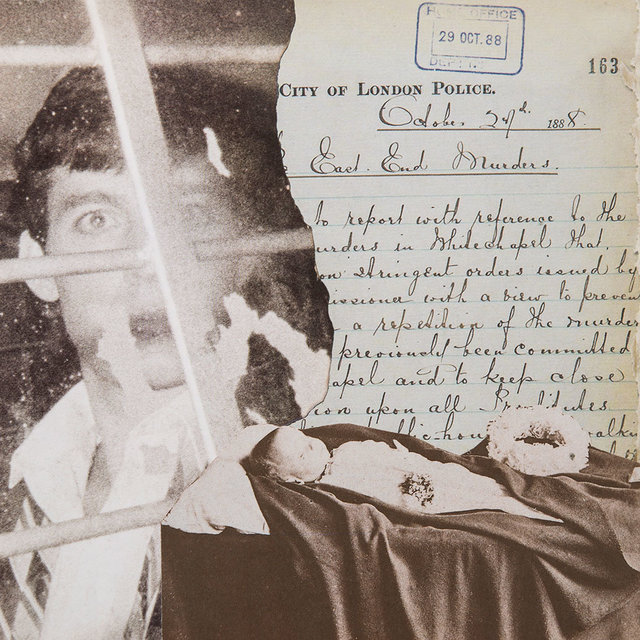 HOME OFFICE
29 OCT. 88
163
CITY OF LONDON POLICE.
October 27th 1888
East End Murders.
to report with reference to the
murders in Whitechapel that,
on stringent orders issued by
issioner with a view to preven
a repetition of the murder
previously been committed
apel and to keep close
ion upon all Prostitutes